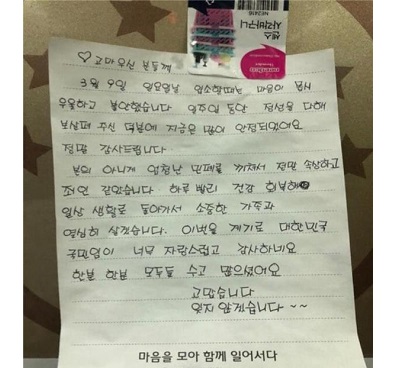 사각바구니
♡ 고마우신 분들께
3월 9일 일요일날 입소할때는 마음이 몹시
우울하고 불안했습니다 일주일 동안 정성을 다해
보살펴 주신 덕분에 지금은 많이 안정되었어요
정말 감사드립니다
본의 아니게 엄청난 민폐를 끼쳐서 정말 속상하고
죄인 같았습니다. 하루 빨리 건강 회복해
일상 생활로 돌아가서 소중한 가족과
열심히 살겠습니다. 이번을 계기로 대한민국
국민임이 너무 자랑스럽고 감사하네요
한분 한분 모두들 수고 많으셨어요
고맙습니다
잊지 않겠습니다 ~~
마음을 모아 함께 일어서다